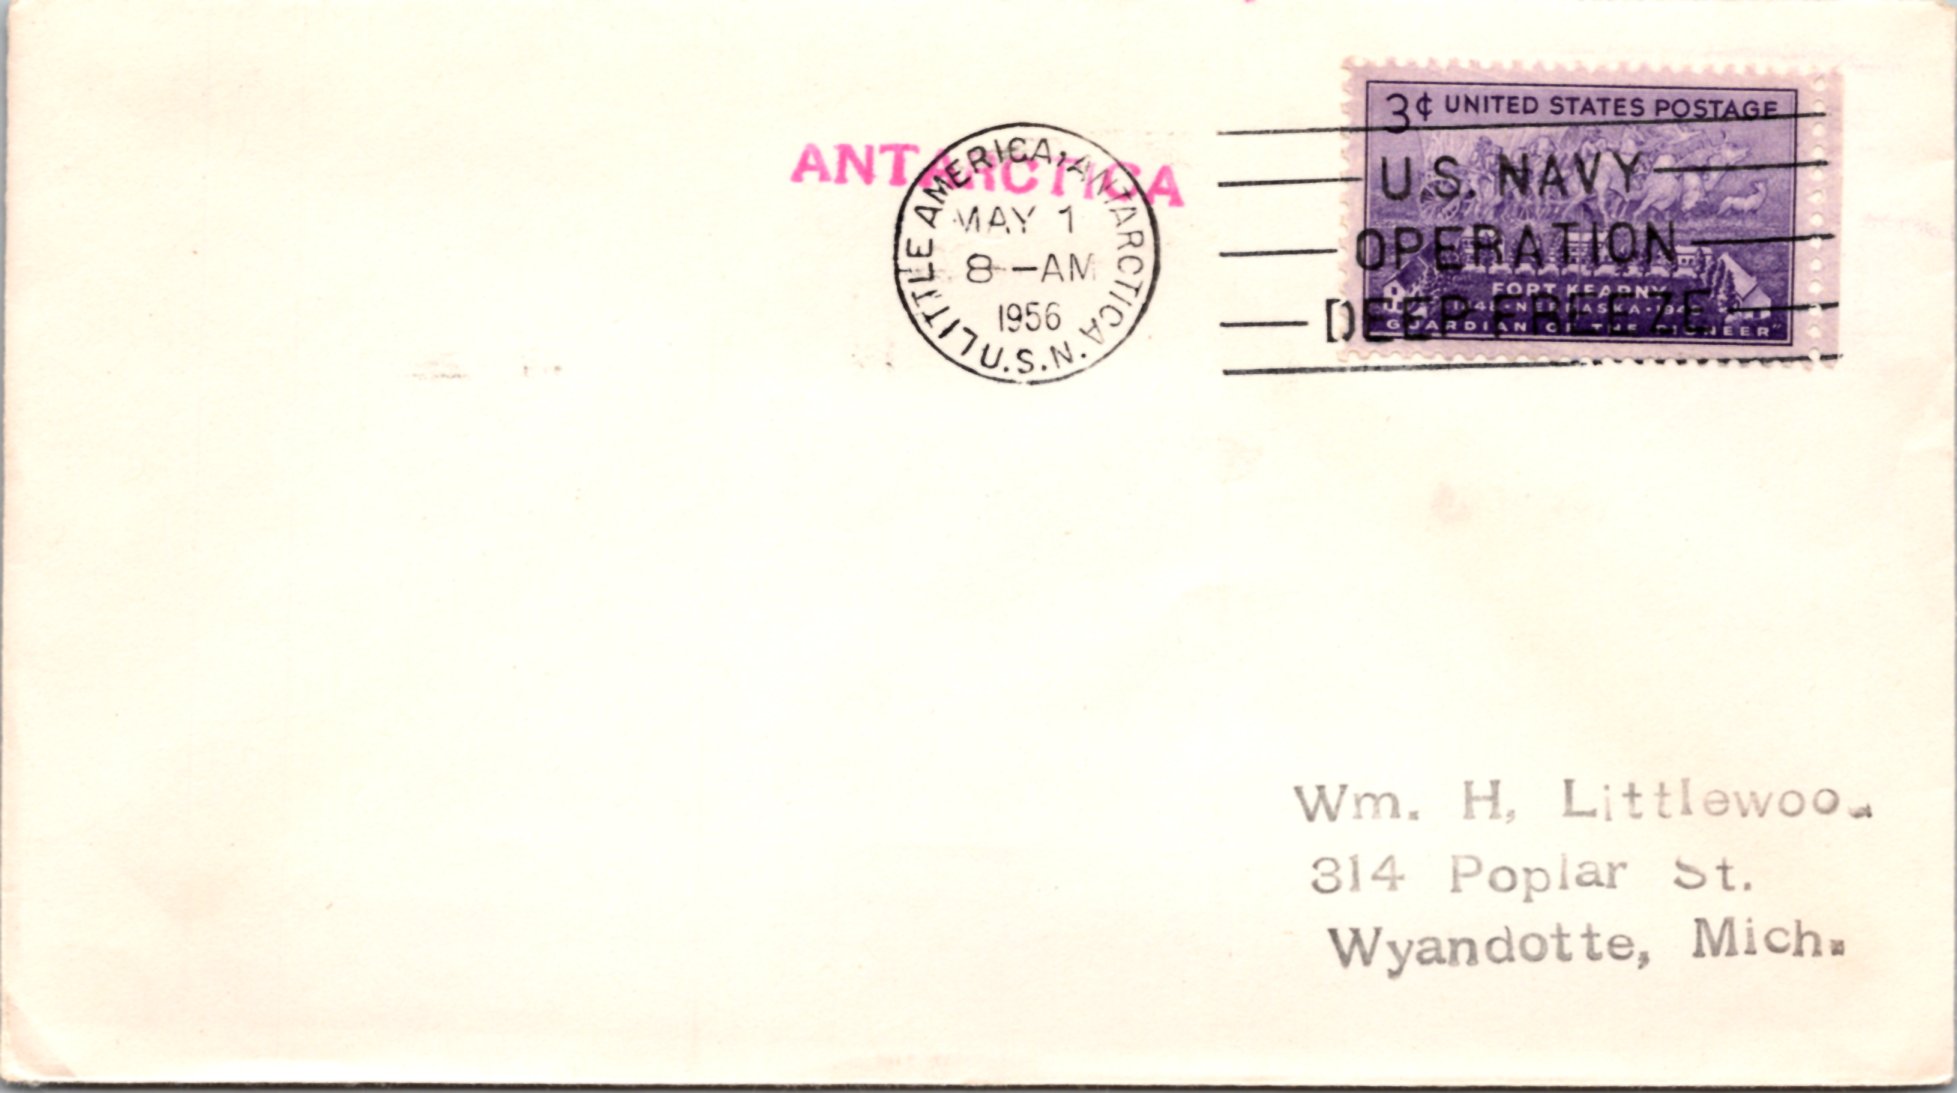 ANTARCTICA
LITTLE AMERICA · ANTARCTICA · U.S.N.
MAY 1
8 - AM
1956
3¢ UNITED STATES POSTAGE
U.S. NAVY
OPERATION
DEEP FREEZE
FORT KEARNY
NEBRASKA
"GUARDIAN OF THE PIONEER"
Wm. H. Littlewood
314 Poplar St.
Wyandotte, Mich.